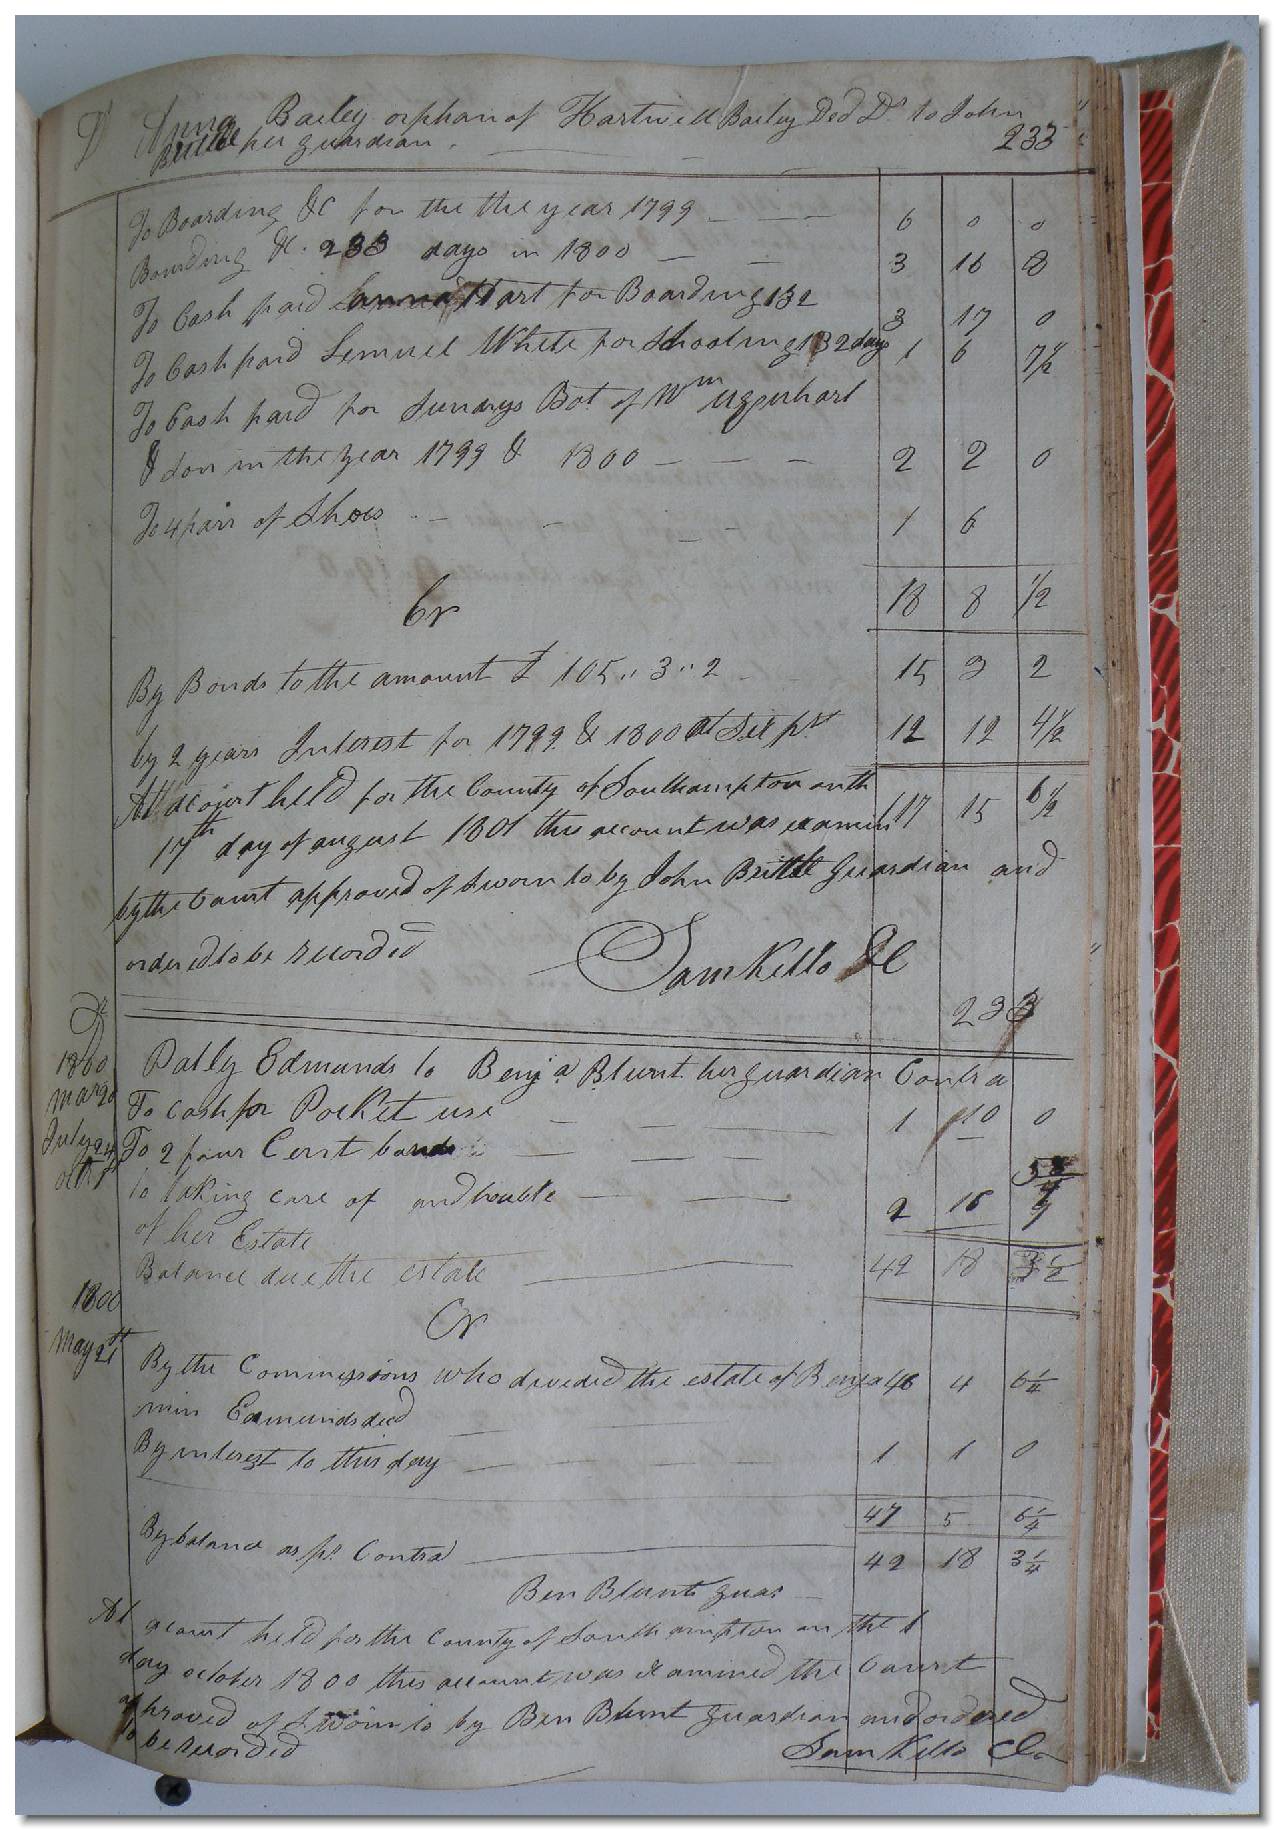 Dr Anna Bailey orphan of Hartwell Bailey Decd Dr to John
Brittle her guardian. 233
To Boarding &c for the the year 1799 6 0 0
Boarding &c. 233 days in 1800 3 16 8
To Cash paid Hart for Boarding 132 3 17 0
To Cash paid Lemuel White for Schooling 132 days 1 6 7 1/2
To Cash paid for Sundrys Bot of Wm Urquhart
& don in the year 1799 & 1800 2 2 0
To 4 pair of Shoes 1 6
18 8 1/2
Cr
By Bonds to the amount £ 105 ,, 3 ,, 2 15 3 2
by 2 years Interest for 1799 & 1800 at Six pr 12 12 4 1/2
At a Court held for the County of Southampton on th 117 15 6 1/2
17th day of august 1801 this account was examind
by the Court approved of Sworn to by John Brittle Guardian and
ordered to be recorded Sam Kello &C
233
Dr
1800 Patty Edmunds to Benja Blunt her guardian Contra
Mar 20 To Cash for Pocket use 1 10 0
July 24 To 2 four Cent bonds
octr 1 To taking care of and trouble 2 16
of her Estate
Balance due the estate 42 18
1800 Cr
May 21th By the Commissions who devided the estate of Benja 46 4 6 1/4
min Edmunds decd
By interest to this day 1 1 0
47 5 6 1/4
By balance as pr. Contra 42 18 3 1/4
Ben Blunt guar
At a court held for the County of Southampton on the 1
day october 1800 this account was Examined the Court
approved of Sworn to by Ben Blunt guardian and ordered
To be recorded Sam Kello